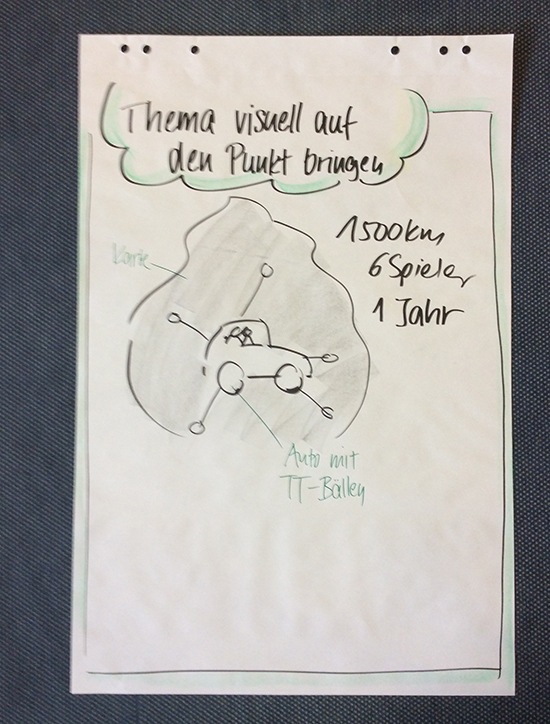 Thema visuell auf
den Punkt bringen
1500km
6 Spieler
1 Jahr
Karte
Auto mit
TT-Bällen